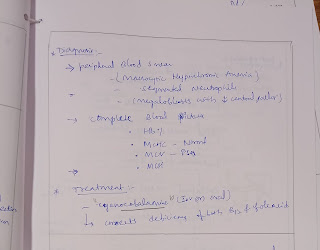 * Diagnosis :-
→ peripheral blood smear
- (Macrocytic Hyperchromic Anemia)
- segmented neutrophils
- (megaloblasts with ↓ central pallor)
→ complete Blood picture
• Hb%
• MCHC - Normal
• MCV -
• MCH
* Treatment :-
- "cyanocobalamine" (IM or oral)
↳ corrects deficiency of both B12 & folic acid